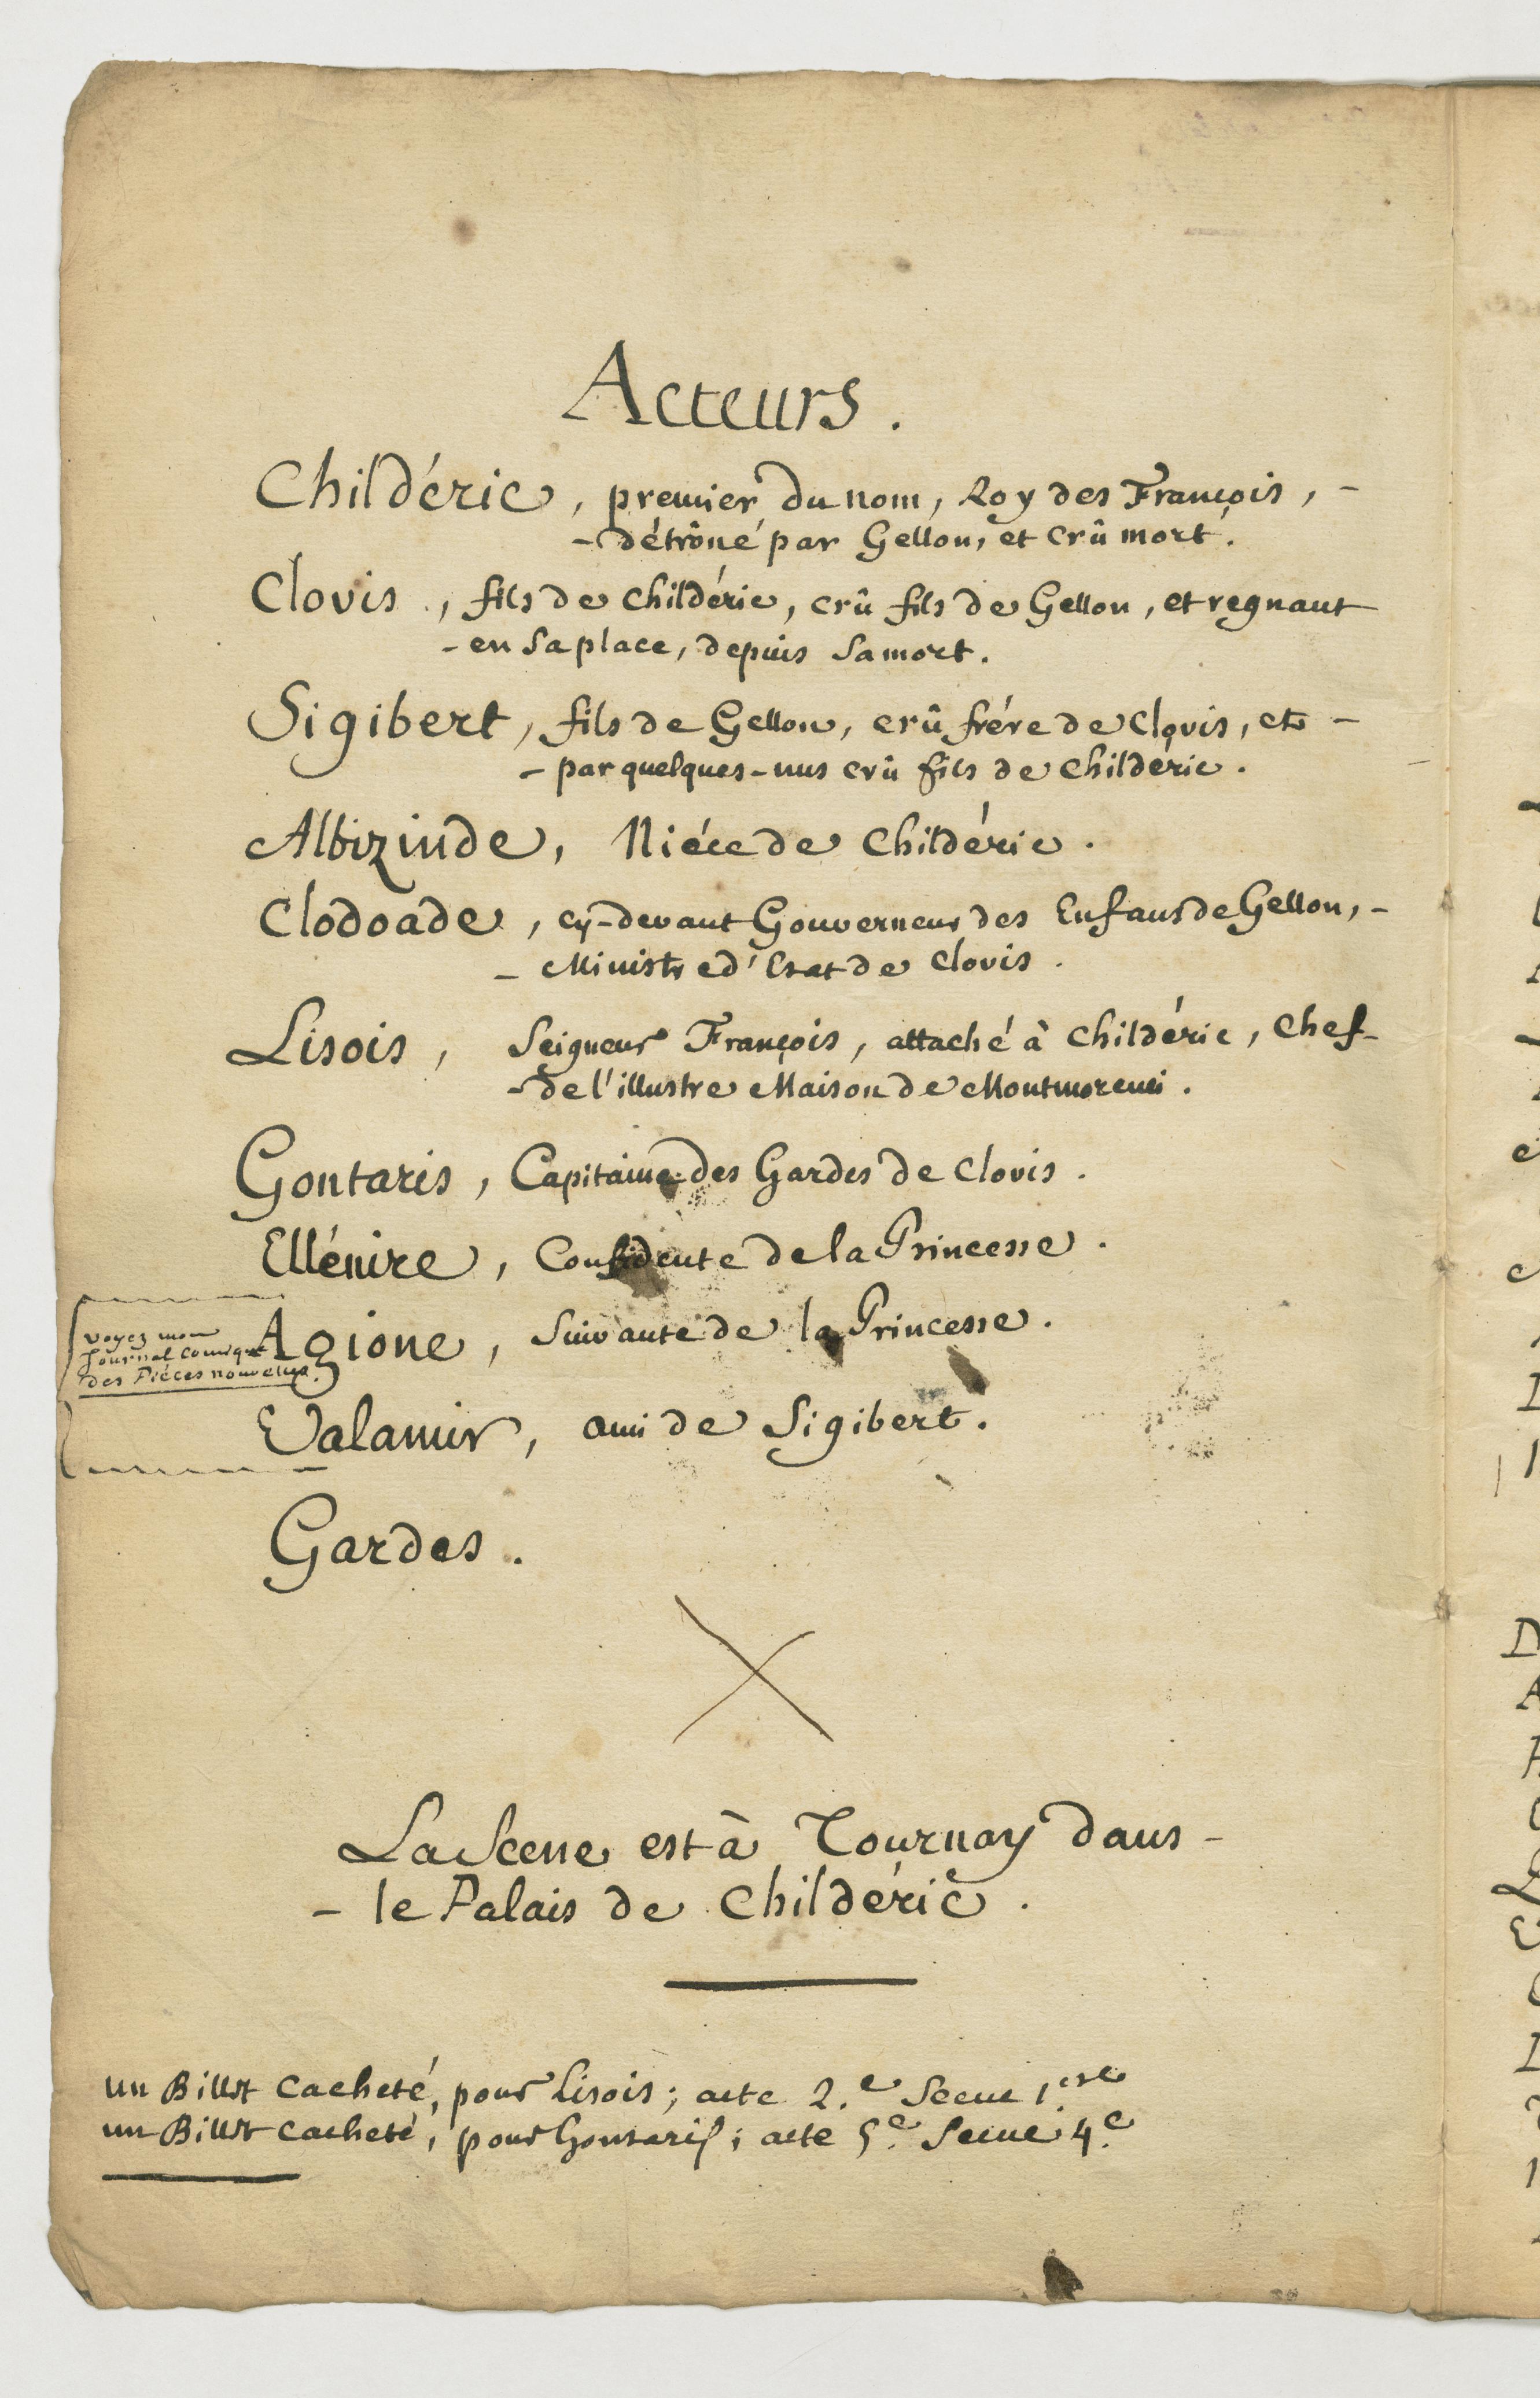 Acteurs.
Childéric, premier du nom, Roy des François, -
- détrôné par Gellon, et crû mort.
Clovis, fils de Childéric, crû fils de Gellon, et regnant
- en sa place, depuis sa mort.
Sigibert, fils de Gellon, crû frére de Clovis, et -
- par quelques-uns crû fils de Childéric.
Albizinde, Niéce de Childéric.
Clodoade, cy-devant Gouverneur des Enfans de Gellon, -
- Ministre d'Etat de Clovis.
Lisois, Seigneur François, attaché à Childéric, Chef
- de l'illustre Maison de Montmorenci.
Gontaris, Capitaine des Gardes de Clovis.
Ellénire, Confidente de la Princesse.
Agione, Suivante de la Princesse.
voyez mon
Journal comique
des Piéces nouvelles.
Valamir, ami de Sigibert.
Gardes.
La Scene est à Tournay dans -
- le Palais de Childéric.
un Billet cacheté, pour Lisois; acte 2.e Scene 1.ere
un Billet cacheté, pour Gontaris; acte 5.e Scene 4.e